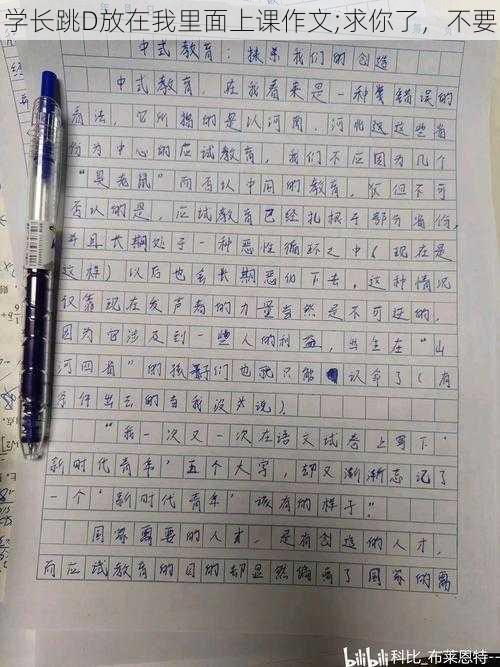 学长跳D放在我里面上课作文;求你了，不要
中式教育：抹杀我们的创造
中式教育，在我看来是一种荒错误的
看法，它所指的是以河南、河北这这些省
份为中心的应试教育，我们不应因为几个
“是老鼠”而否认中国的教育，仅但不可
否认的是，应试教育已经扎根于部分省份，
并且长期处于一种恶性循环之中（现在是
这样）以后也会长期恶们下去。这种情况
仅靠现在发声者的力量当然是不可逆的，
因为它涉及到一些人的利益，当生在“山
河四省”的孩子们也就只能认命了（有
条件出去的当我没为说）
“我一次又一次在语文试卷上写下‘
新时代青年’五个大字，却又渐渐忘记了
一个‘新时代青年’该有的样子。”
国家需要的人才，是有创造的人才，
而应试教育的目的却显然偏离了国家的需
bilibili 科比_布莱恩特--